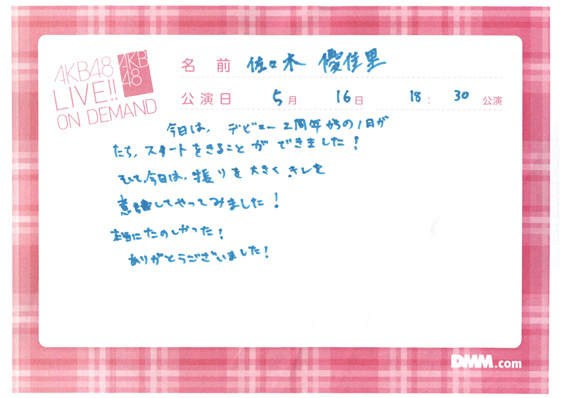 AKB48
LIVE!!
ON DEMAND
AKB
48
名前 佐々木 優佳里
公演日 5月 16日 18:30 公演
今日は、デビュー2周年からの1日が
たち、スタートをきることができました!
そして今日は、振りを大きくキレを
意識してやってみました!
本当にたのしかった!
ありがとうございました!
DMM.com